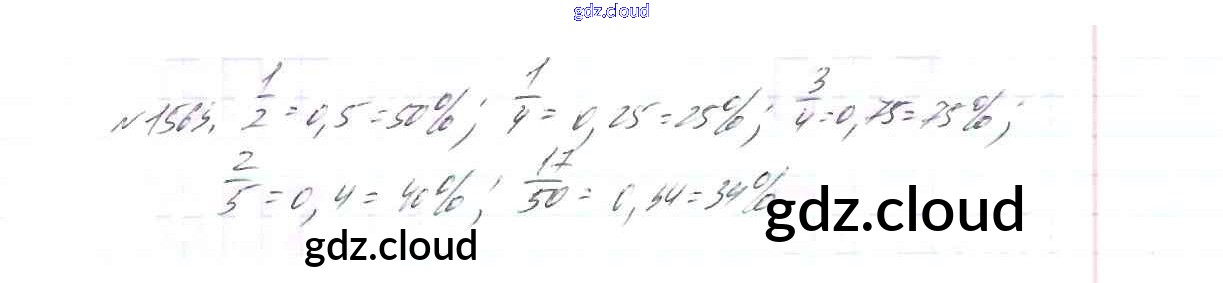 gdz.cloud
№1563. 1/2 = 0,5 = 50%; 1/4 = 0,25 = 25%; 3/4 = 0,75 = 75%;
2/5 = 0,4 = 40%; 17/50 = 0,34 = 34%
gdz.cloud
gdz.cloud